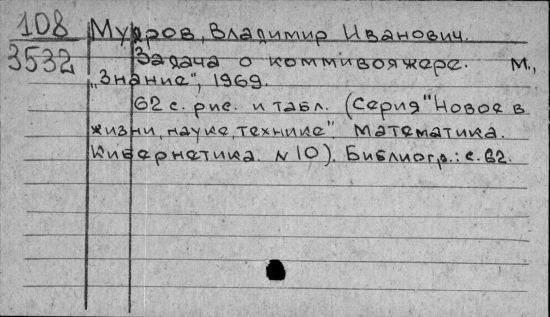 108 Мудров, Владимир Иванович.
3532 Задача о коммивояжере. М.,
„Знание", 1969.
62 с. рис. и табл. (Серия "Новое в
жизни, науке, технике". Математика.
Кибернетика. N 10). Библиогр.: с. 62.